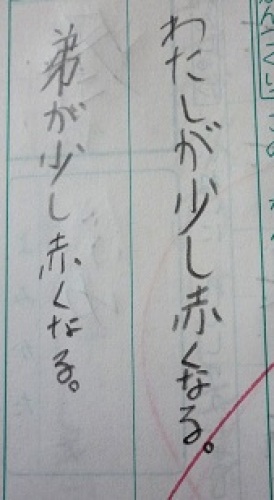 わたしが少し赤くなる。
弟が少し赤くなる。